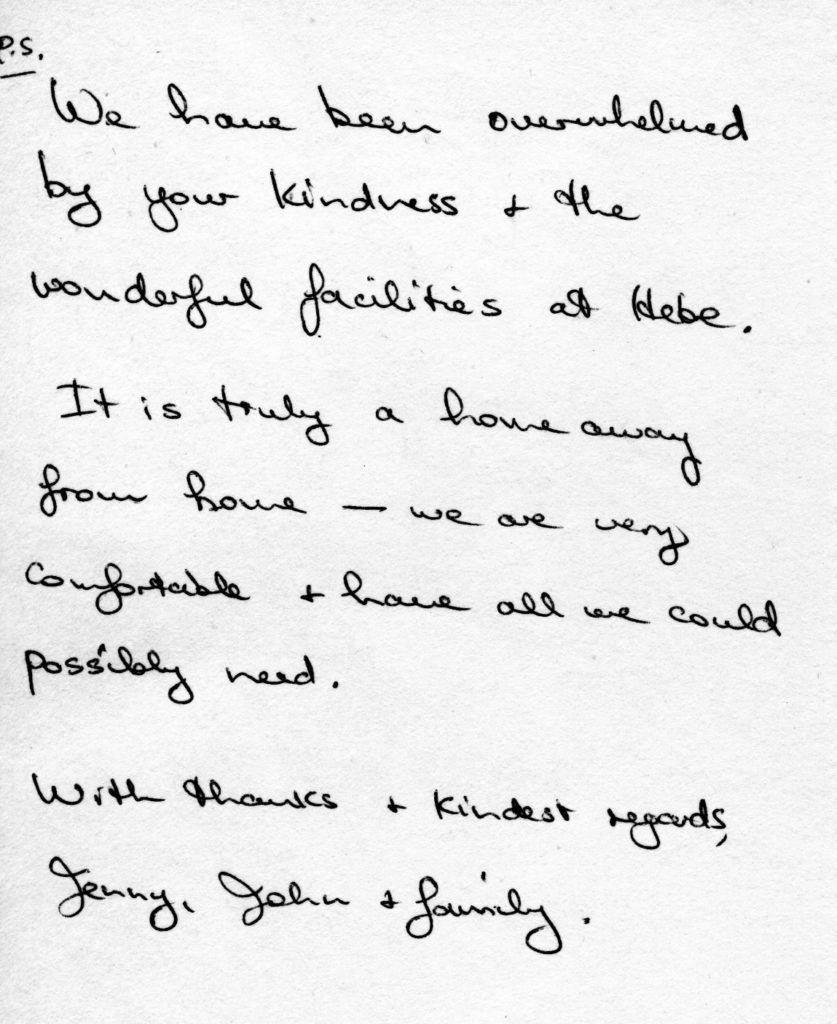 P.S.
We have been overwhelmed
by your kindness + the
wonderful facilities at Hebe.
It is truly a home away
from home — we are very
comfortable + have all we could
possibly need.
With thanks + kindest regards,
Jenny, John + family.